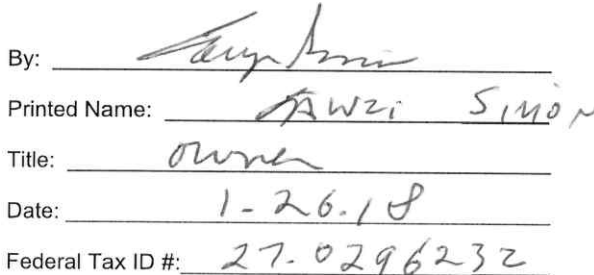 By:
Printed Name: FAWZi SIMON
Title: owner
Date: 1-26.18
Federal Tax ID #: 27.0296232